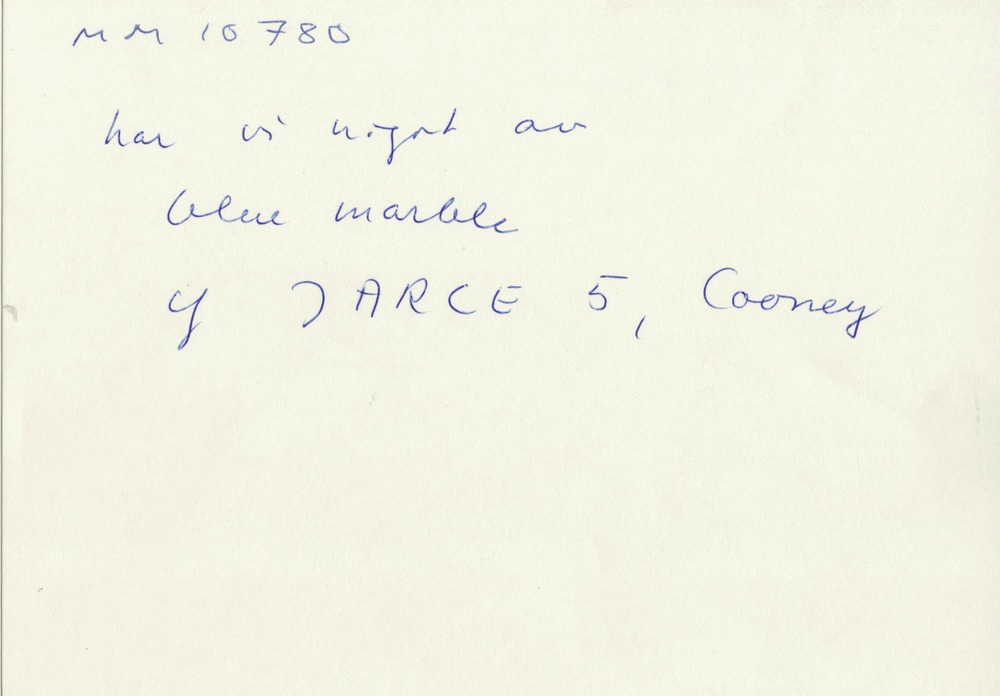 MM 10 780
har vi något av
blue marble
cf JARCE 5, Cooney